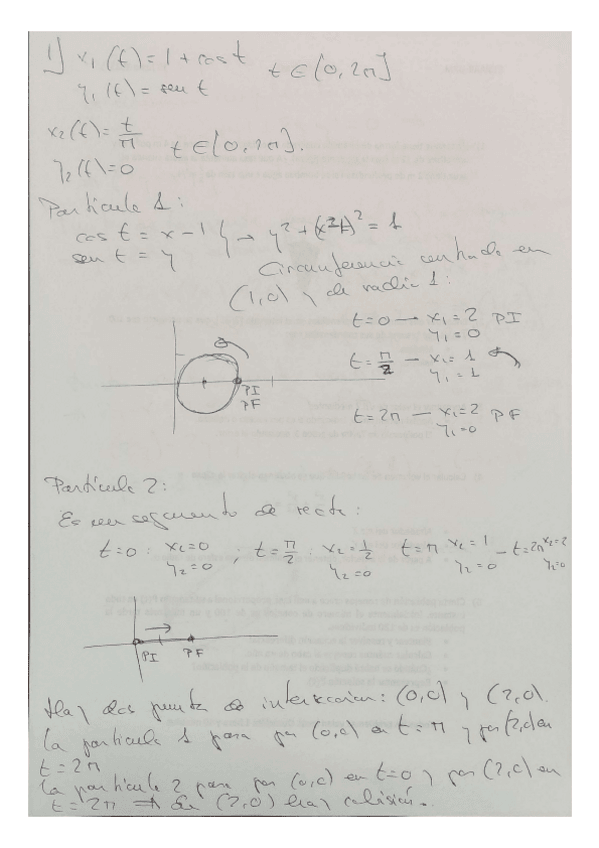 1) x₁(t) = 1 + cos t   t ∈ [0, 2π]
y₁(t) = sen t
x₂(t) = t/π   t ∈ [0, 2π].
y₂(t) = 0
Partícula 1:
cos t = x - 1 } → y² + (x-1)² = 1
sen t = y
Circunferencia centrada en
(1,0) y de radio 1:
t=0 — x₁=2 PI
y₁=0
t=π/2 — x₁=1
y₁=1
PI
PF
t=2π — x₁=2 PF
y₁=0
Partícula 2:
Es un segmento de recta:
t=0 : x₂=0 ; t=π/2 : x₂=1/2 t=π x₂=1 - t=2π x₂=2
y₂=0 y₂=0 y₂=0 y₂=0
PI PF
Hay dos puntos de intersección: (0,0) y (2,0).
La partícula 1 pasa por (0,0) en t=π y por (2,0) en
t=2π
la partícula 2 pasa por (0,0) en t=0 y por (2,0) en
t=2π ⇒ En (2,0) hay colisión.